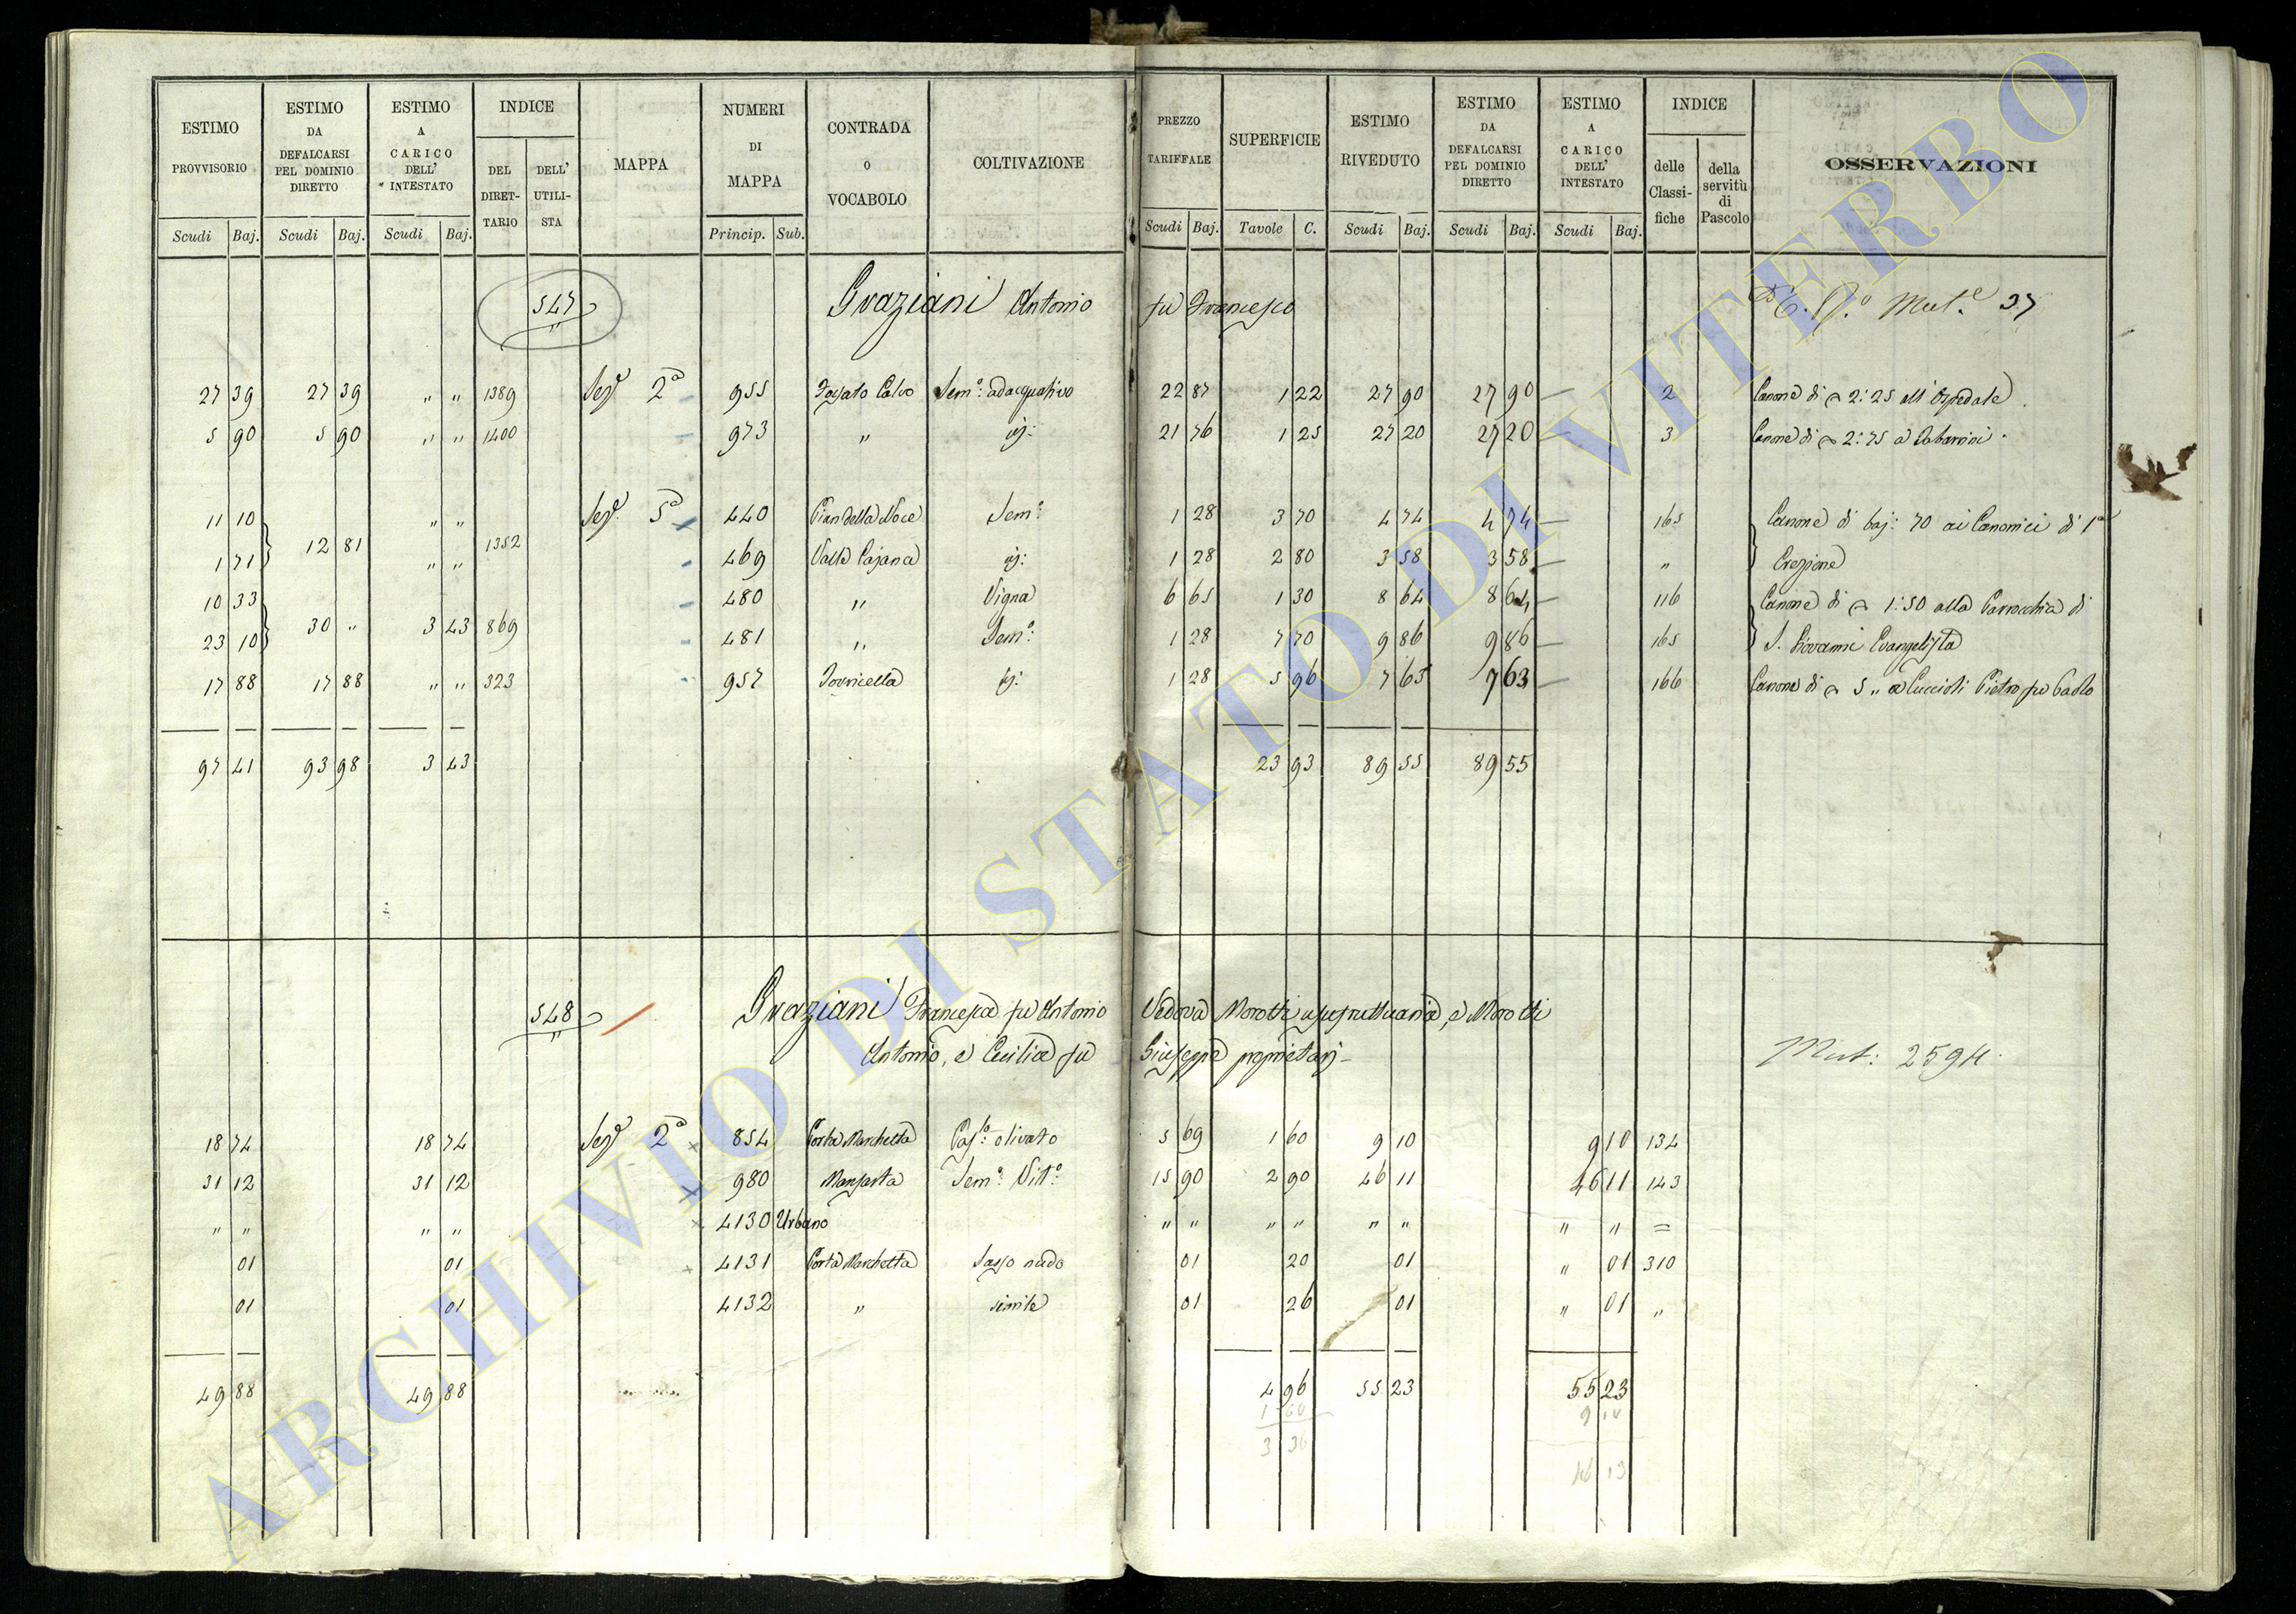 ESTIMO PROVVISORIO | ESTIMO DA DEFALCARSI PEL DOMINIO DIRETTO | ESTIMO A CARICO DELL' INTESTATO | INDICE | MAPPA | NUMERI DI MAPPA | CONTRADA O VOCABOLO | COLTIVAZIONE | PREZZO TARIFFALE | SUPERFICIE | ESTIMO RIVEDUTO | ESTIMO DA DEFALCARSI PEL DOMINIO DIRETTO | ESTIMO A CARICO DELL' INTESTATO | INDICE | OSSERVAZIONI
DEL DIRETTARIO | DELL' UTILISTA | delle Classifiche | della servitù di Pascolo
Scudi Baj. | Scudi Baj. | Scudi Baj. | Princip. Sub. | Scudi Baj. | Tavole C. | Scudi Baj. | Scudi Baj. | Scudi Baj.
547 Graziani Antonio fu Francesco Mut.e 37
27 39 | 27 39 | " " | 1389 | Sez.e 2a | 955 | Fossato Calvo | Sem.o: adacquativo | 22 87 | 1 22 | 27 90 | 27 90 | 2 | Canone di 2:25 all' Ospedale
5 90 | 5 90 | " " | 1400 | 973 | " | sj: | 21 76 | 1 25 | 27 20 | 27 20 | 3 | Canone di 2:75 a
11 10 | " " | Sez.e 5a | 440 | Pian della Noce | Sem.o: | 1 28 | 3 70 | 4 74 | 4 74 | 165 | Canone di baj: 70 ai Canonici di 1a
12 81 | 1352
1 71 | " " | 469 | Valle Cajana | sj: | 1 28 | 2 80 | 3 58 | 3 58 | " | Erezione
10 33 | 480 | " | Vigna | 6 65 | 1 30 | 8 64 | 8 64 | 116 | Canone di 1:50 alla Parrocchia di
30 " | 3 43 | 869
23 10 | 481 | " | Sem.o: | 1 28 | 7 70 | 9 86 | 9 86 | 165 | S. Giovanni Evangelista
17 88 | 17 88 | " " | 323 | 957 | Torricella | sj: | 1 28 | 5 96 | 7 63 | 7 63 | 166 | Canone di 5 " a Cuccioli Pietro fu Paolo
97 41 | 93 98 | 3 43 | 23 93 | 89 55 | 89 55
548 Graziani Francesca fu Antonio Vedova Morotti usufruttuaria, e Morotti
Antonio, e Cecilia fu Giuseppe proprietarj
Mut: 2594
18 74 | 18 74 | Sez.e 2a | 854 | Porta Marchetta | Pas.o: olivato | 5 69 | 1 60 | 9 10 | 9 10 | 134
31 12 | 31 12 | 980 | Manfarta | Sem.o: Vit.o: | 15 90 | 2 90 | 46 11 | 46 11 | 143
" " | " " | 4130 | Urbano | " " | " " | " " | " " | =
01 | 01 | 4131 | Porta Marchetta | Sasso nudo | 01 | 20 | 01 | " 01 | 310
01 | 01 | 4132 | " | simile | 01 | 26 | 01 | " 01 | "
49 88 | 49 88 | 4 96 | 55 23 | 55 23
1 60 | 9 10
3 36
46 13
ARCHIVIO DI STATO DI VITERBO